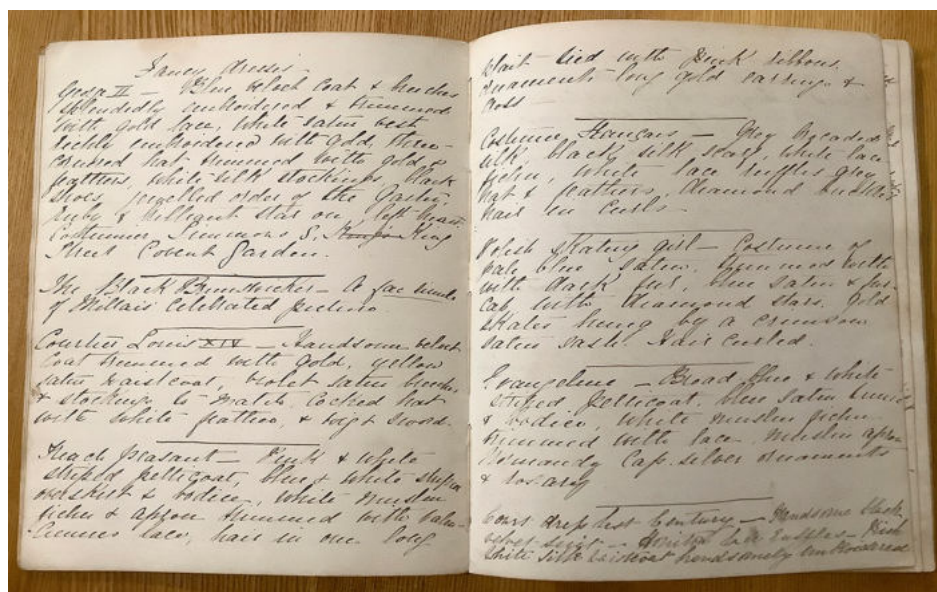 Fancy dresses -
George III - Blue velvet coat & breeches
splendidly embroidered & trimmed
with gold lace, white satin vest
richly embroidered with gold, three-
cornered hat trimmed with gold &
feathers, white silk stockings, black
shoes, jewelled order of the Garter,
ruby & brilliant star on left breast.
Costumier Simmons 8, King
Street Covent Garden.
The Black Brunswicker - A fac simile
of Millais celebrated picture
Courtier Louis XIV - Handsome velvet
coat trimmed with gold, yellow
satin waistcoat, violet satin breeches
& stockings to match, cocked hat
with white feathers, & wig & sword.
French Peasant - Pink & white
striped petticoat, blue & white striped
overskirt & bodice, white muslin
fichu & apron trimmed with Valen-
ciennes lace, hair in one long
plait tied with pink ribbons.
Ornaments long gold earrings &
cross -
Costume Français - Grey brocaded
silk, black silk scarf, white lace
fichu, white lace ruffles grey
hat & feathers, diamond buckles
hair in curls -
Polish skating girl - Costume of
pale blue satin, trimmed with
with dark fur, blue satin & fur
cap with diamond stars. Gold
skates hung by a crimson
satin sash. Hair curled.
Evangeline - Broad blue & white
striped petticoat, blue satin tunic
& bodice, white muslin fichu
trimmed with lace. Muslin apron
Normandy Cap. silver ornaments
& rosary
Court dress last Century - Handsome black
velvet suit - Honiton lace ruffles - Rich
white silk waistcoat handsomely embroidered